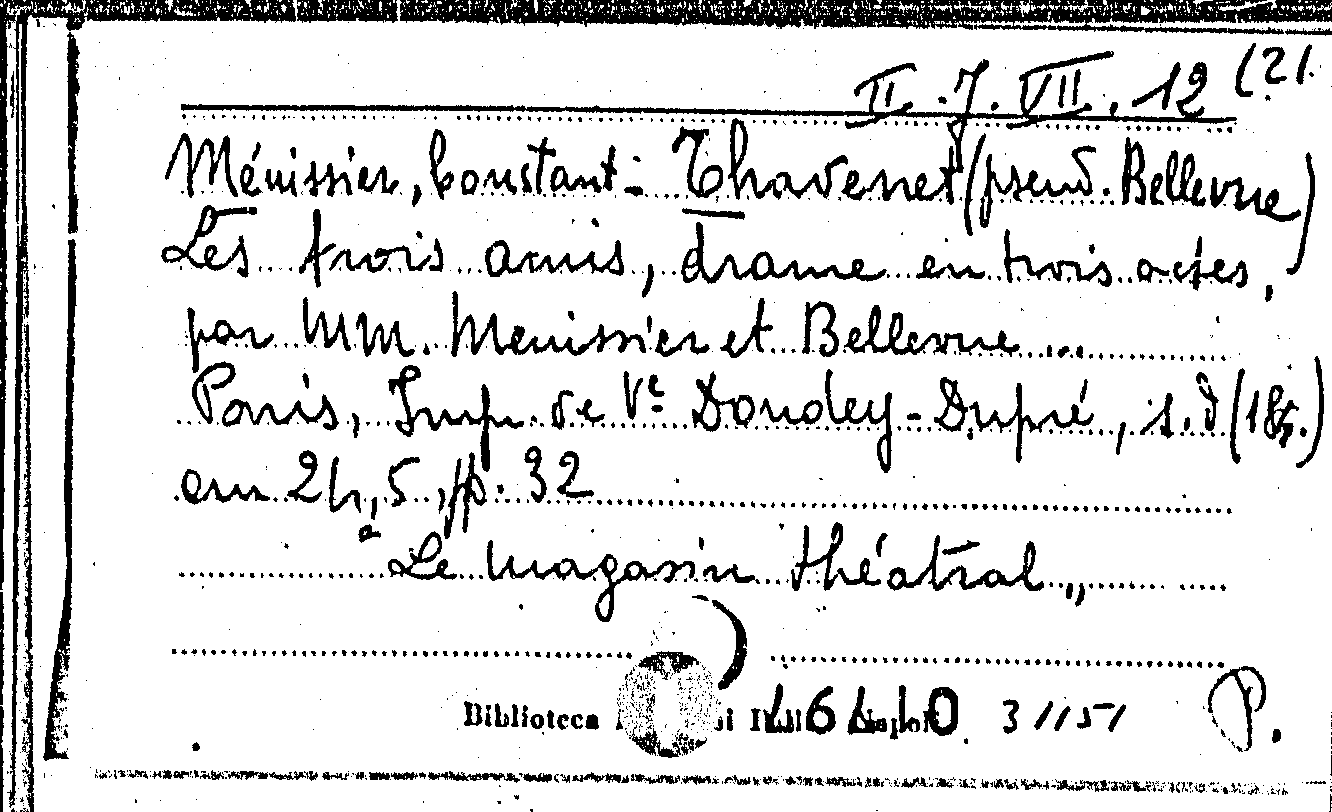 II. J. VII. 12 (21.
Ménissier, Constant - Thavenet (pseud. Bellevue)
Les trois amis, drame en trois actes,
par MM. Menissier et Bellevue ...
Paris, Imp. de Vᵉ Dondey-Dupré, s. d (18..)
cm 24,5, pp. 32
"Le magasin théatral„
Biblioteca
3 1151
P.